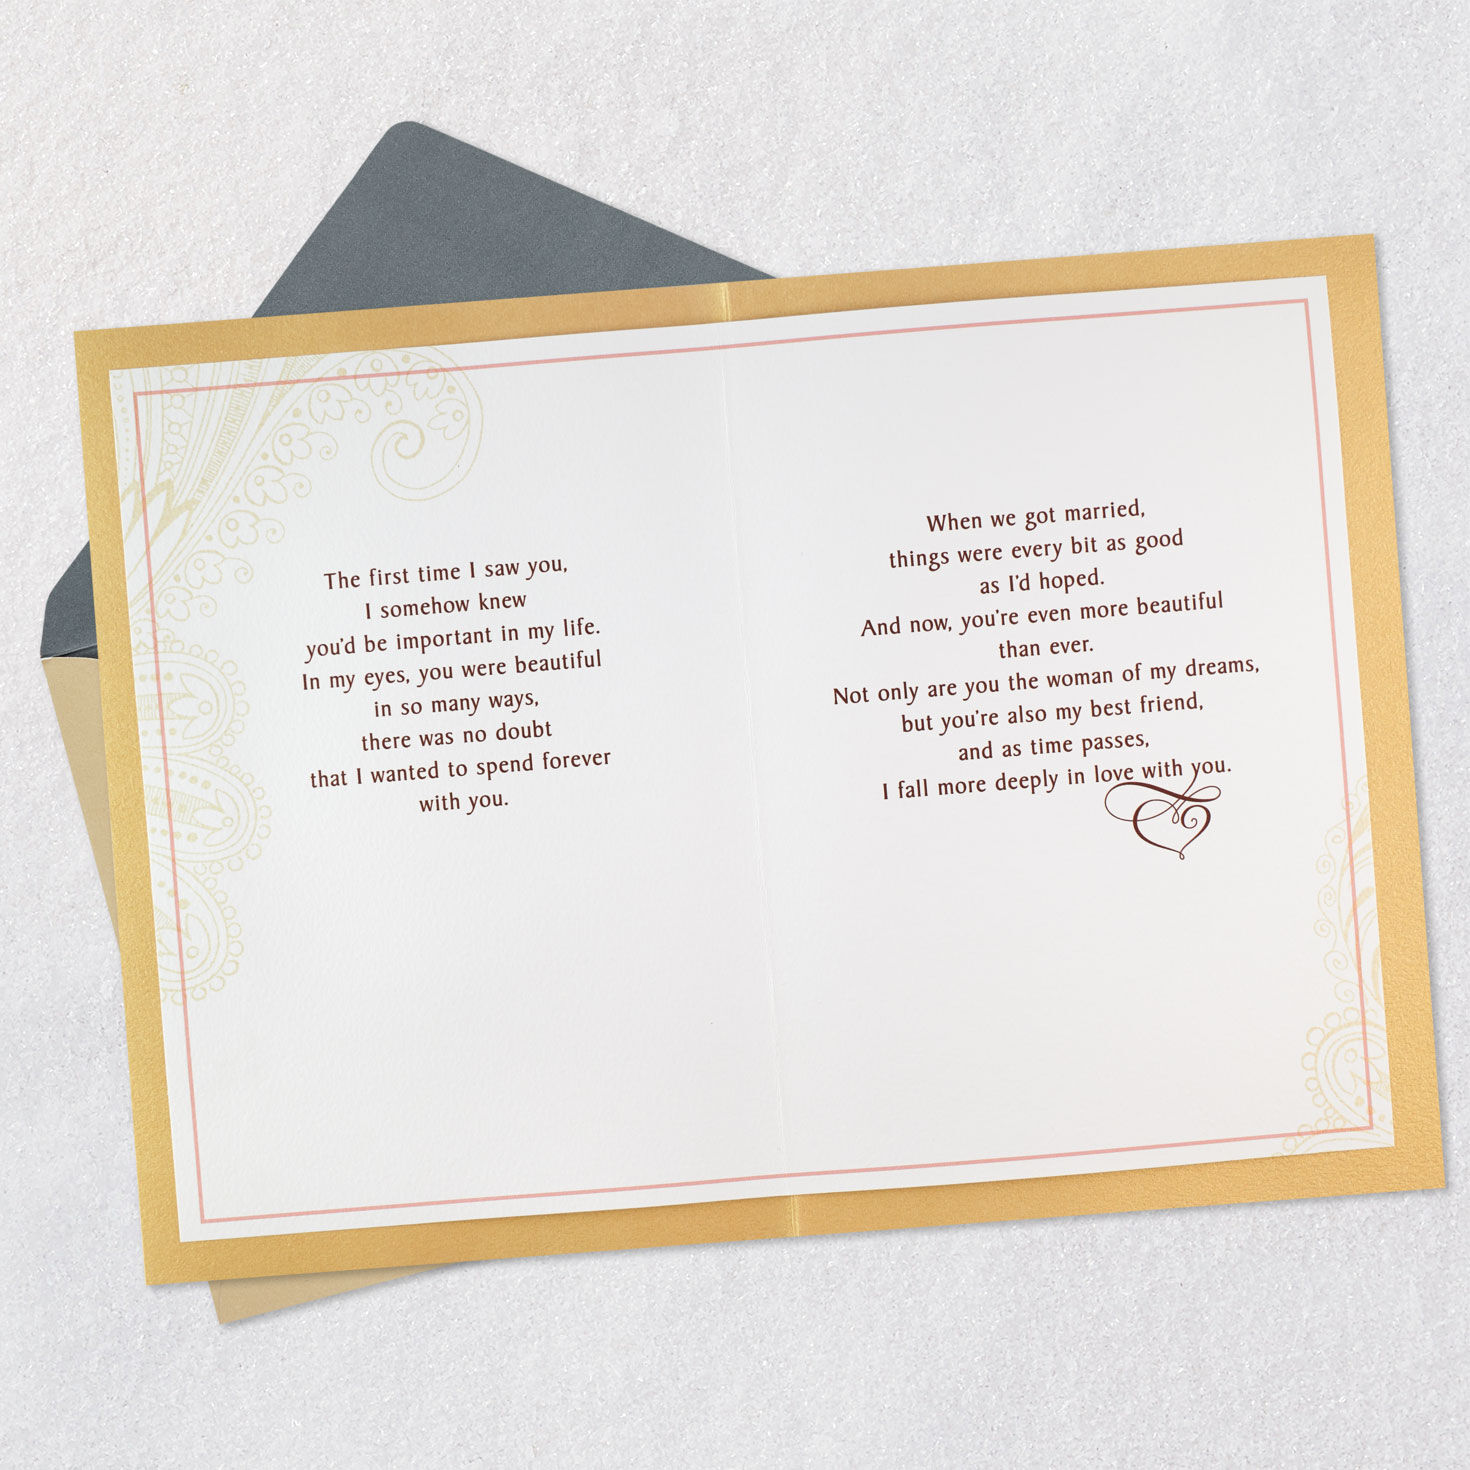 The first time I saw you,
I somehow knew
you'd be important in my life.
In my eyes, you were beautiful
in so many ways,
there was no doubt
that I wanted to spend forever
with you.
When we got married,
things were every bit as good
as I'd hoped.
And now, you're even more beautiful
than ever.
Not only are you the woman of my dreams,
but you're also my best friend,
and as time passes,
I fall more deeply in love with you.